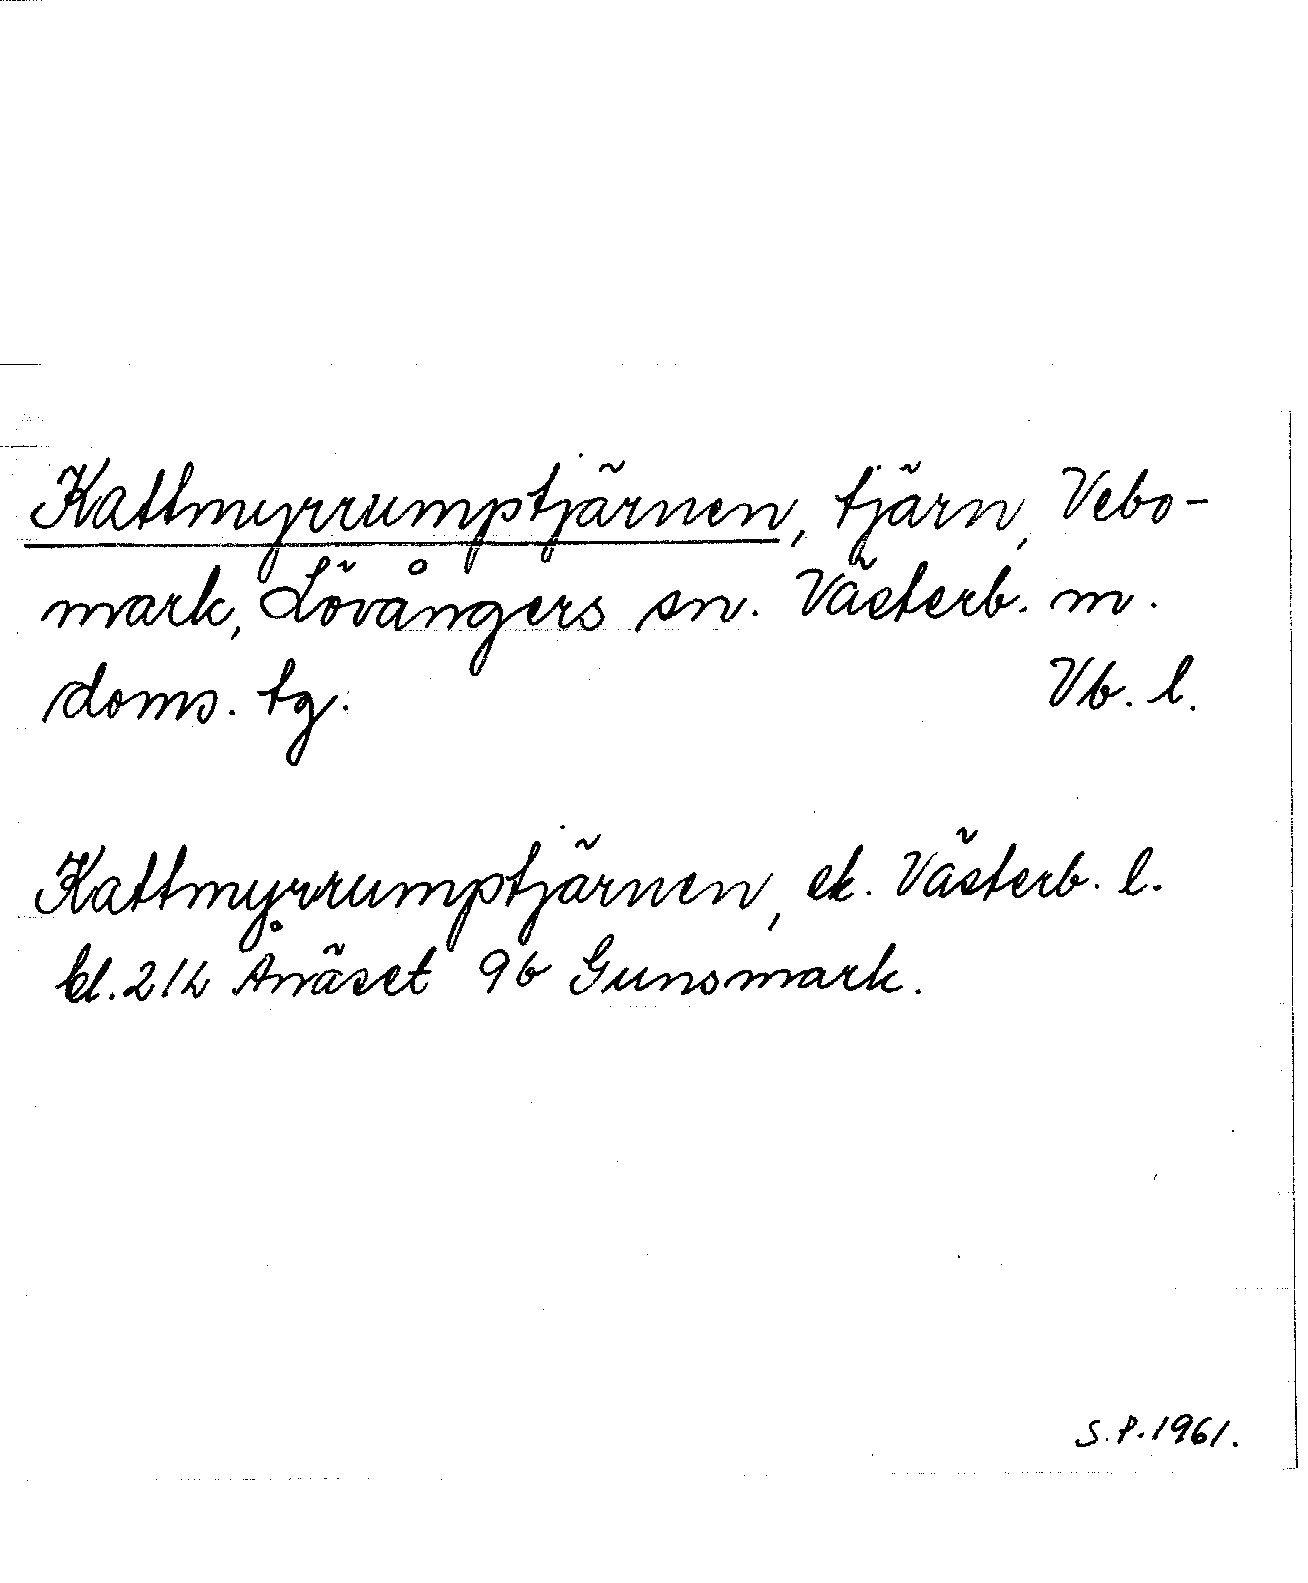 Kattmyrrumptjärnen, tjärn, Vebo-
mark, Lövångers sn. Västerb. m.
doms. tg. Vb. l.
Kattmyrrumptjärnen, ek. Västerb. l.
bl. 21h Ånäset 9b Gunsmark.
S. P. 1961.